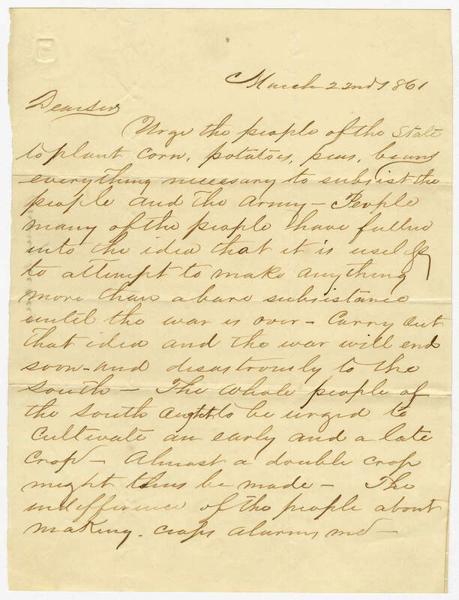 March 22nd 1861
Dear Sir
Urge the people of the State
to plant corn, potatoes, peas, beans
everything necessary to subsist the
people and the Army - People
many of the people have fallen
into the idea that it is useless
to attempt to make anything
more than a bare subsistance
until the war is over - Carry out
that idea and the war will end
soon - and disastrously to the
South - The whole people of
the South ought to be urged to
cultivate an early and a late
crop - Almost a double crop
might thus be made - The
indifference of the people about
making crops alarms me -